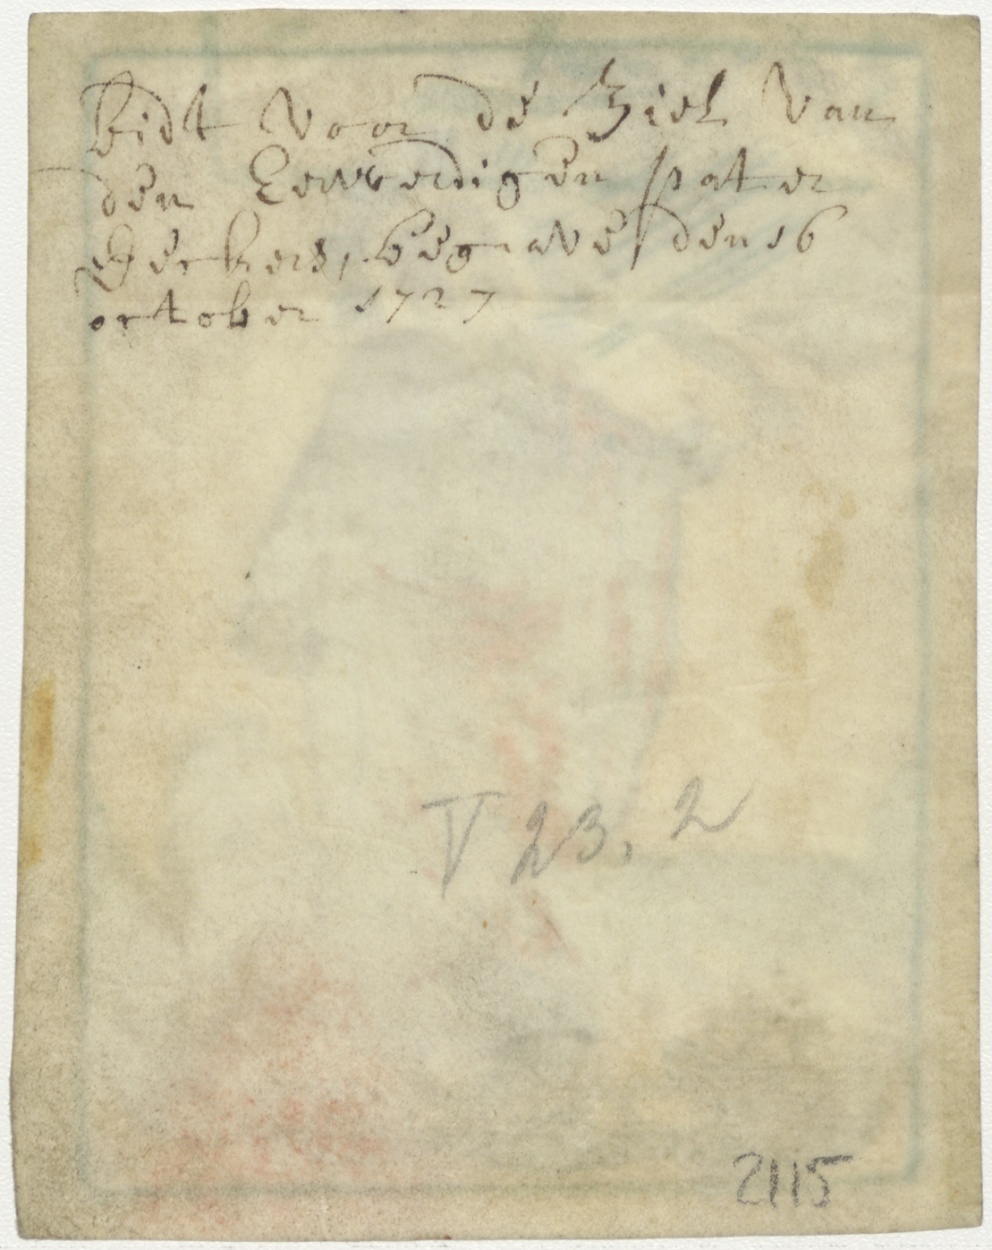 bidt voor de Ziel van
den Eerwerdigen pater
begrave den 16
october 1727
V 23, 2
2115